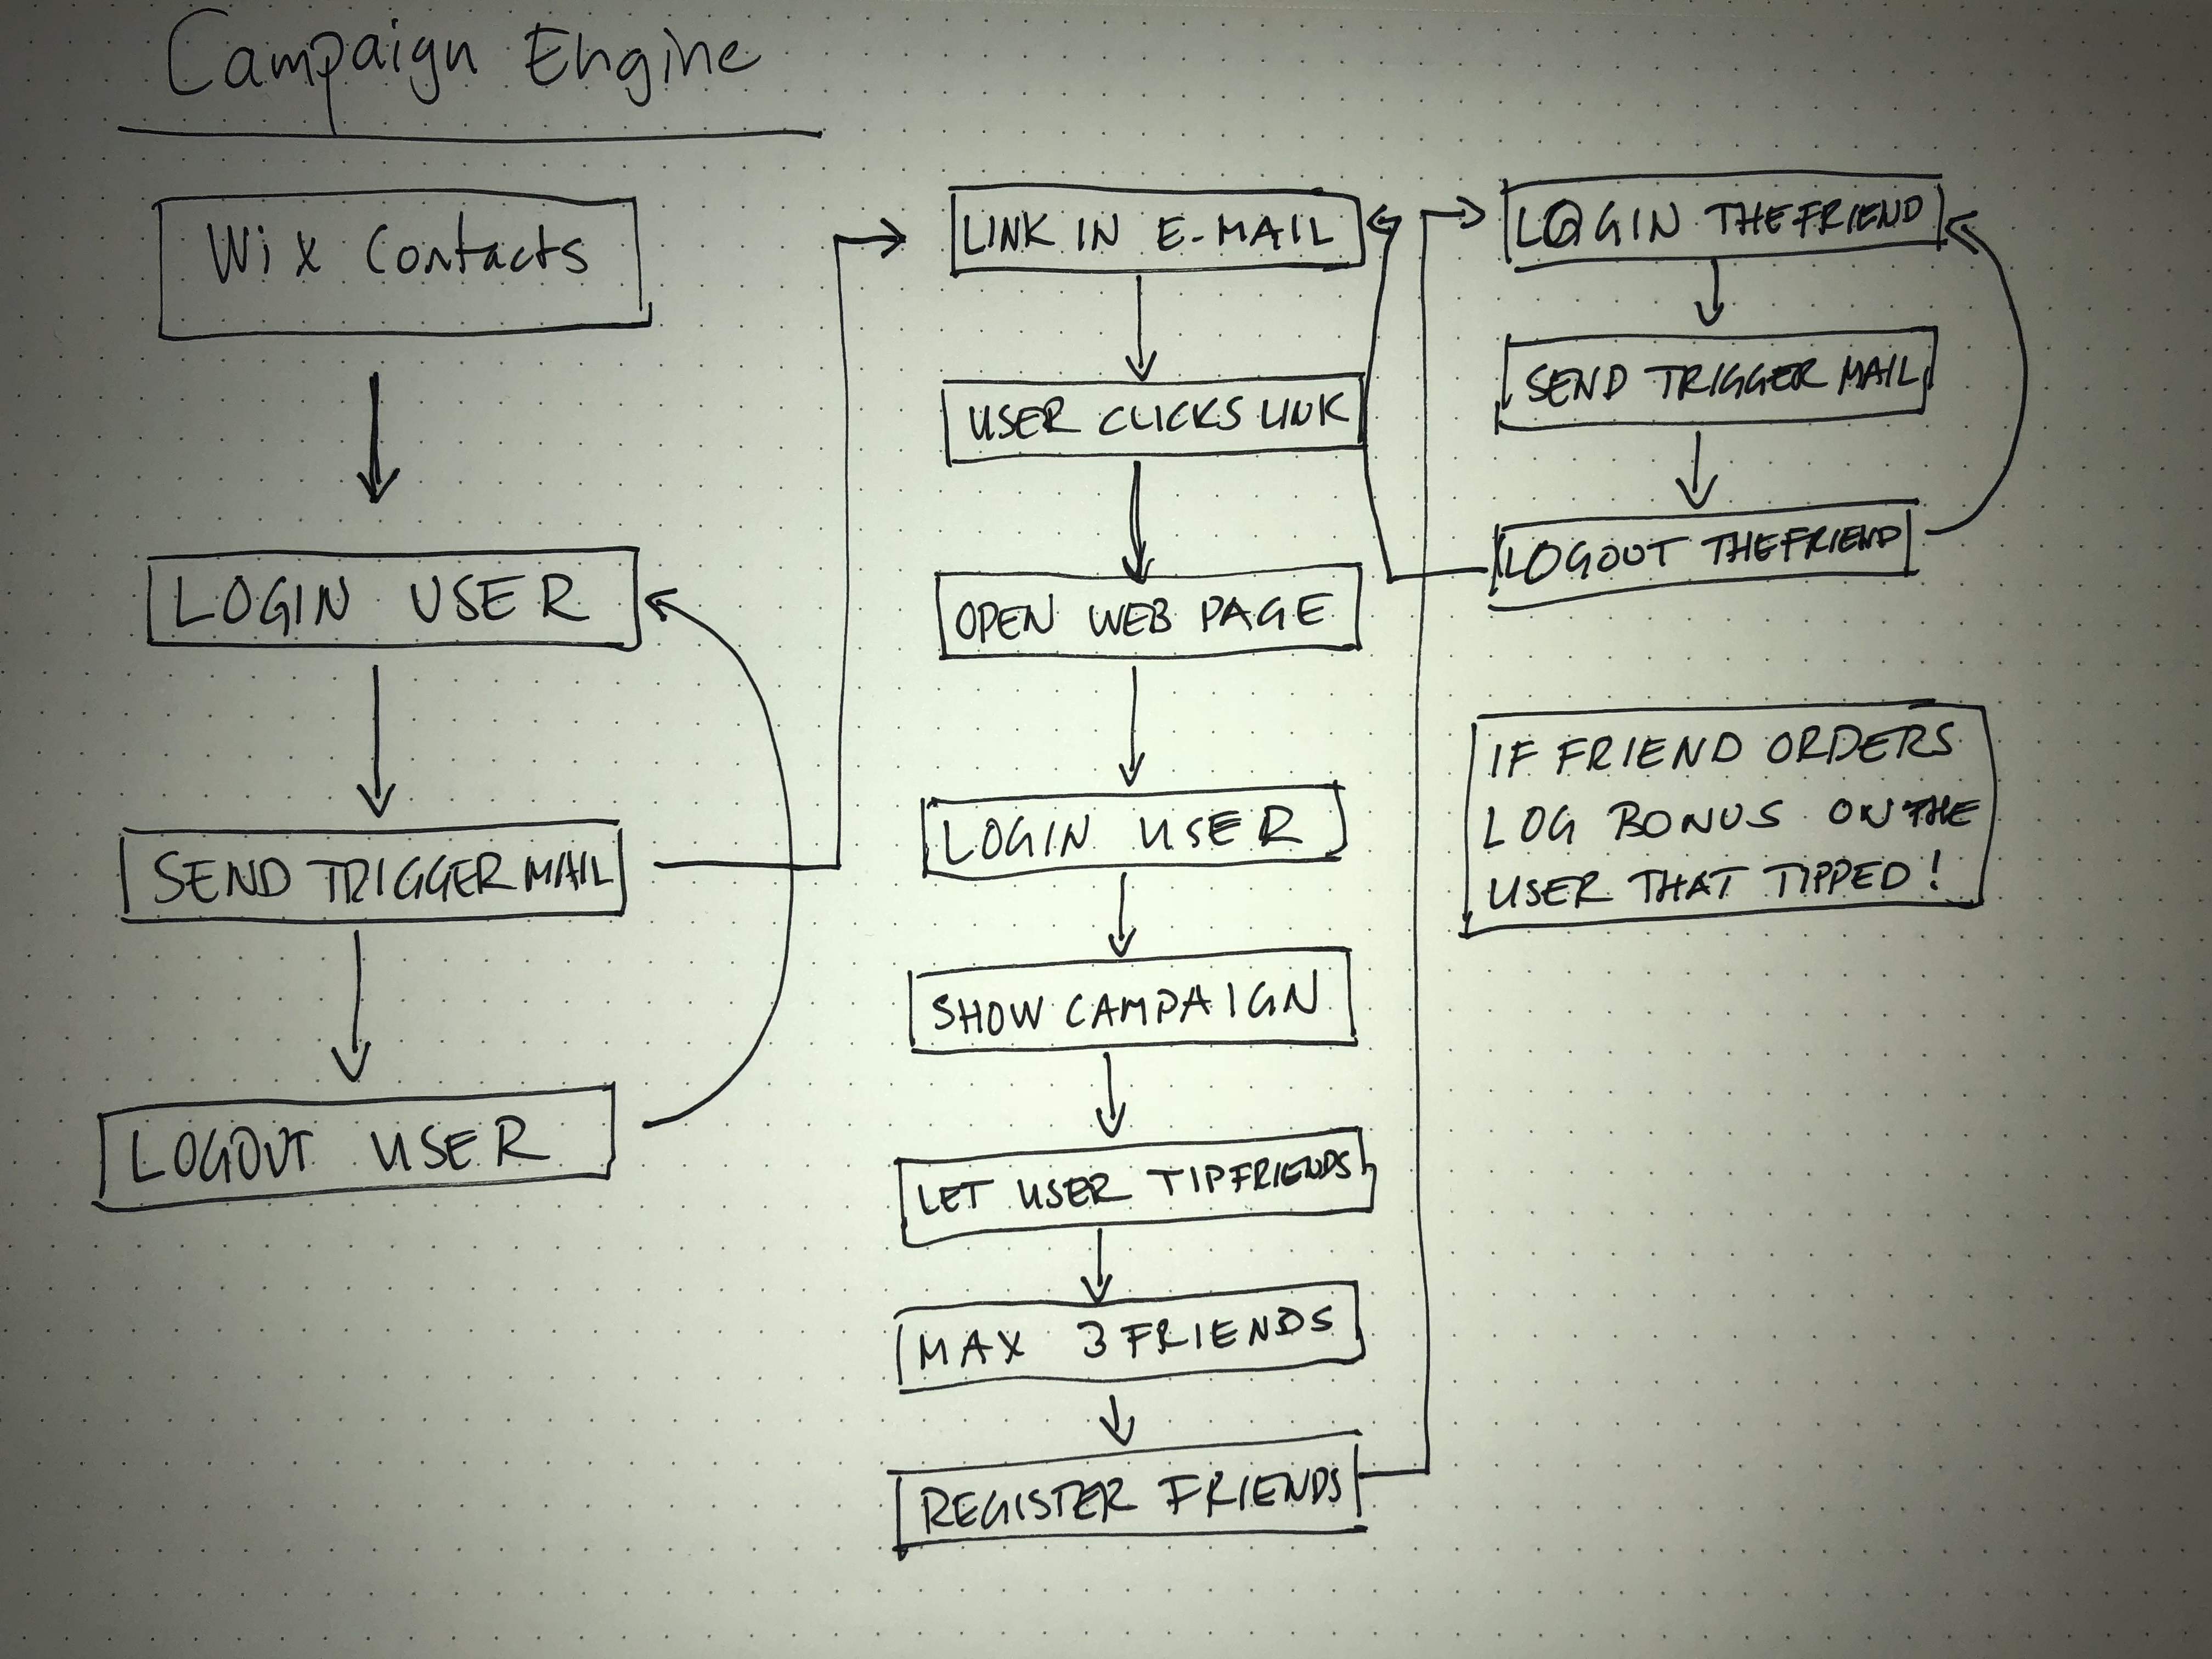 Campaign Engine
Wix Contacts
LOGIN USER
SEND TRIGGER MAIL
LOGOUT USER
LINK IN E-MAIL
USER CLICKS LINK
OPEN WEB PAGE
LOGIN USER
SHOW CAMPAIGN
LET USER TIP FRIENDS
MAX 3 FRIENDS
REGISTER FRIENDS
LOGIN THE FRIEND
SEND TRIGGER MAIL
LOGOUT THE FRIEND
IF FRIEND ORDERS
LOG BONUS ON THE
USER THAT TIPPED!